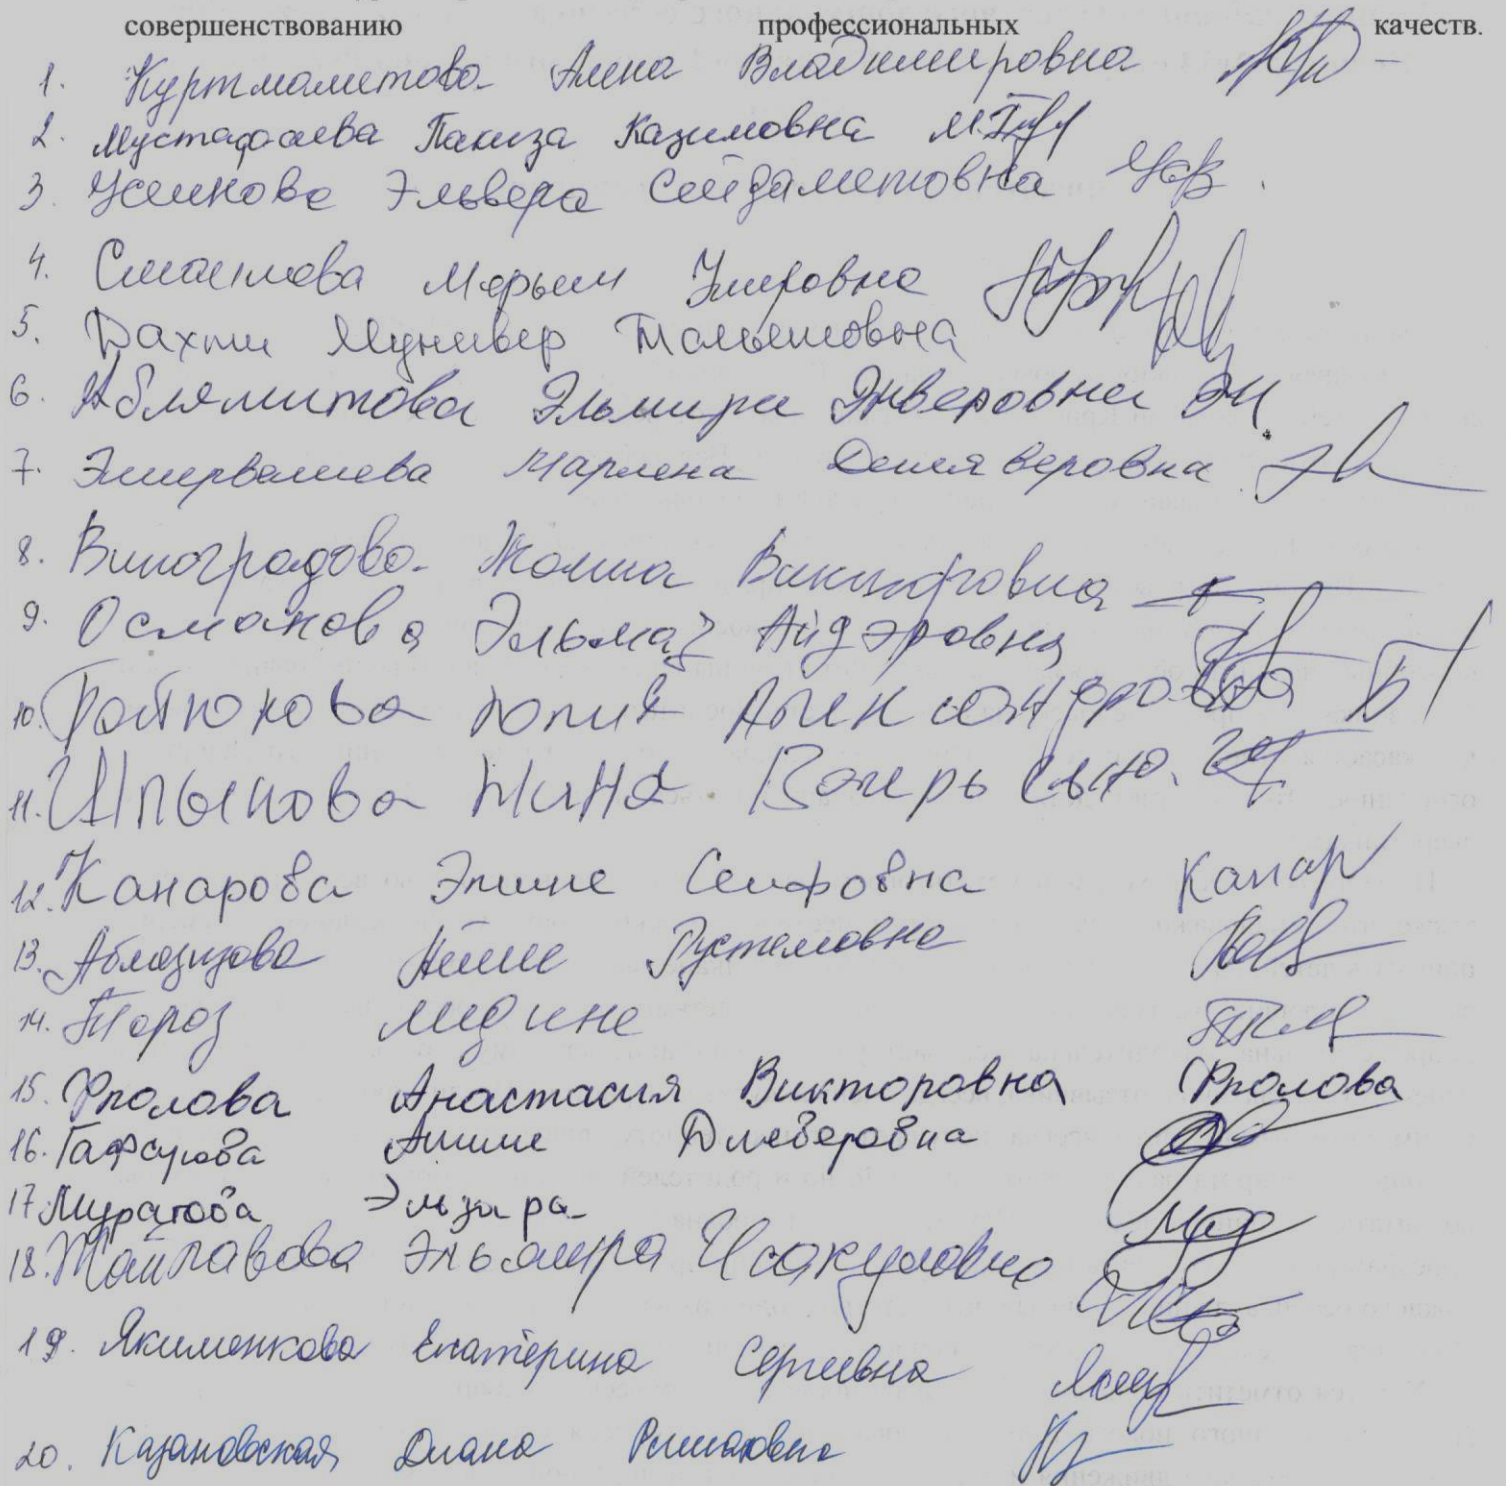 совершенствованию профессиональных качеств.
1. Куртмаметова Алена Владимировна
2. Мустафаева Пакиза Казимовна
3. Усеинова Эльвера Сейдаметовна
4. Смаилова Мерьем Умеровна
5. Бахши Мунивер
6. Аблямитова Эльмира Энверовна ЭА
7. Эмирвалиева Марлена Деляверовна
8. Виноградова Жанна Викторовна
9. Османова Эльмаз Айдэровна
10. Юлия Александровна Б
11. Нина Валерьевна
12. Канарова Эмине Сеифовна Канар
13. Аблязизова Рустемовна
14. Тороз Медине
15. Фролова Анастасия Викторовна Фролова
16. Гафурова Алиме Длеверовна
17 Муратова Эльзара
18. Эльмира Исакуловна
19. Якименкова Екатерина Сергеевна
20. Казановская Диана